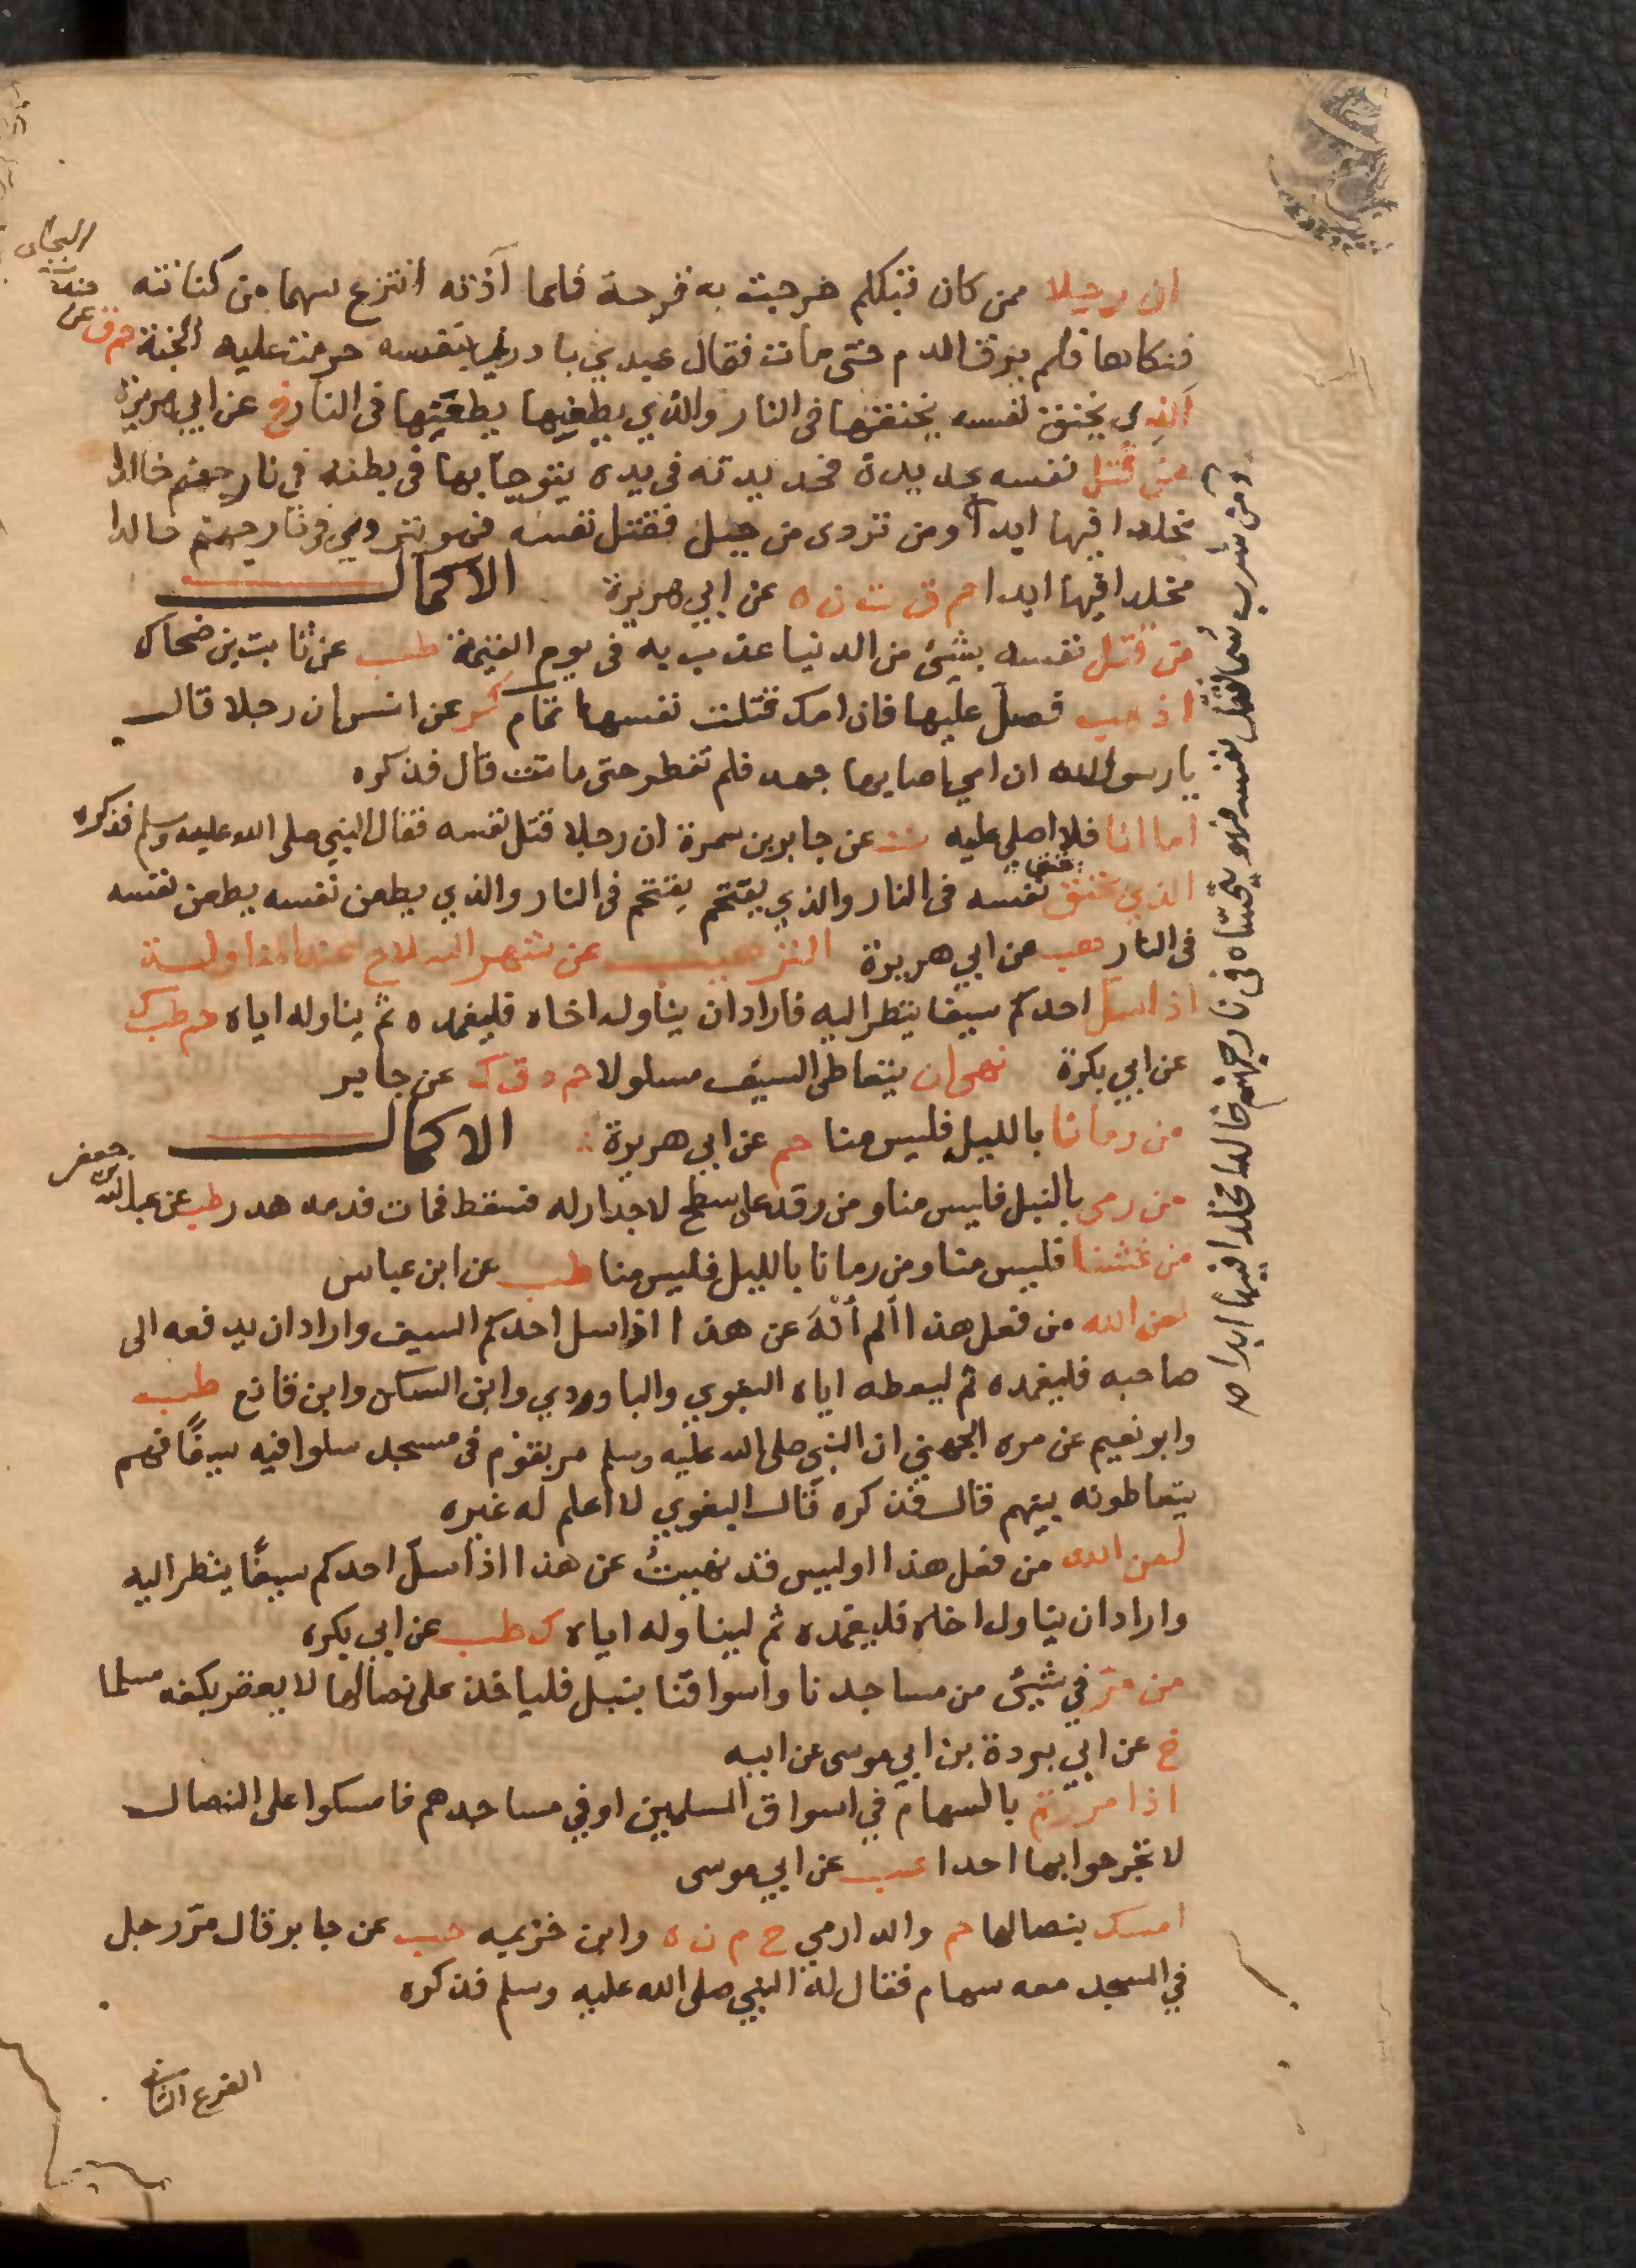 ان رجلا ممن كان قبلكم خرجت به قرحة فلما آذته انتزع سهما من كنانته
فنكاها فلم يرقا الدم حتى مات فقال عبدي بادرني بنفسه حرمت عليه الجنة حم ق عن
جندب البجلي
الذي يخنق نفسه يخنقها فى النار والذي يطعنها يطعنها فى النار خ عن ابي هريرة
من قتل نفسه بحديدة فحديدته فى يده يتوجا بها فى بطنه في نار جهنم خالدا
مخلدا فيها ابدا ومن تردى من جبل فقتل نفسه فهو يتردى في نار جهنم خالدا
مخلدا فيها ابدا حم ق ت ن ه عن ابي هريرة الاكمال
ومن شرب سما فقتل نفسه فهو يتحساه في نار جهنم خالدا مخلدا فيها ابدا صح
من قتل نفسه بشئ من الدنيا عذب به فى يوم القيمة طب عن ثابت بن ضحاك
اذهب فصل عليها فان امك قتلت نفسها تمام كر عن انس ان رجلا قال
يا رسول الله ان امي اصابها جهد فلم تفطر حتى ماتت قال فذكره
اما انا فلا اصلي عليه ن عن جابر بن سمرة ان رجلا قتل نفسه فقال النبي صلى الله عليه وسلم فذكره
الذي يخنق نفسه يخنقها فى النار والذي يقتحم يقتحم فى النار والذي يطعن نفسه يطعن نفسه
فى النار هب عن ابي هريرة الترهيب عن شهر السلاح عند المناولة
اذا سل احدكم سيفا ينظر اليه فاراد ان يناوله اخاه فليغمده ثم يناوله اياه حم طب ك
عن ابي بكرة نهى ان يتعاطى السيف مسلولا حم د ت ك عن جابر
من رمانا بالليل فليس منا حم عن ابي هريرة الاكمال
من رمى بالنبل فليس منا ومن رقد على سطح لا جدار له فسقط فمات فدمه هدر طب عن عبد الله بن جعفر
من غشنا فليس منا ومن رمانا بالليل فليس منا طب عن ابن عباس
لعن الله من فعل هذا ألم أنه عن هذا اذا سل احدكم السيف واراد ان يدفعه الى
صاحبه فليغمده ثم ليعطه اياه البغوي والباوردي وابن السكن وابن قانع طب
وابو نعيم عن مره الجهني ان النبي صلى الله عليه وسلم مر بقوم فى مسجد سلوا فيه سيفا فهم
يتعاطونه بينهم قال فذكره قال البغوي لا اعلم له غيره
لعن الله من فعل هذا اوليس قد نهيت عن هذا اذا سل احدكم سيفا ينظر اليه
واراد ان يناول اخاه فليغمده ثم ليناوله اياه ك طب عن ابي بكره
من مر في شيئ من مساجدنا واسواقنا بنبل فلياخذ على نصالها لا يعقر بكفه مسلما
خ عن ابي بردة بن ابي موسى عن ابيه
اذا مررتم بالسهام في اسواق المسلمين او في مساجدهم فامسكوا على النصال
لا تجرحوا بها احدا عب عن ابي موسى
امسك بنصالها حم والدارمي خ م ن ه وابن خزيمه حب عن جابر قال مر رجل
في المسجد معه سهام فقال له النبي صلى الله عليه وسلم فذكره
الفرع الثاني